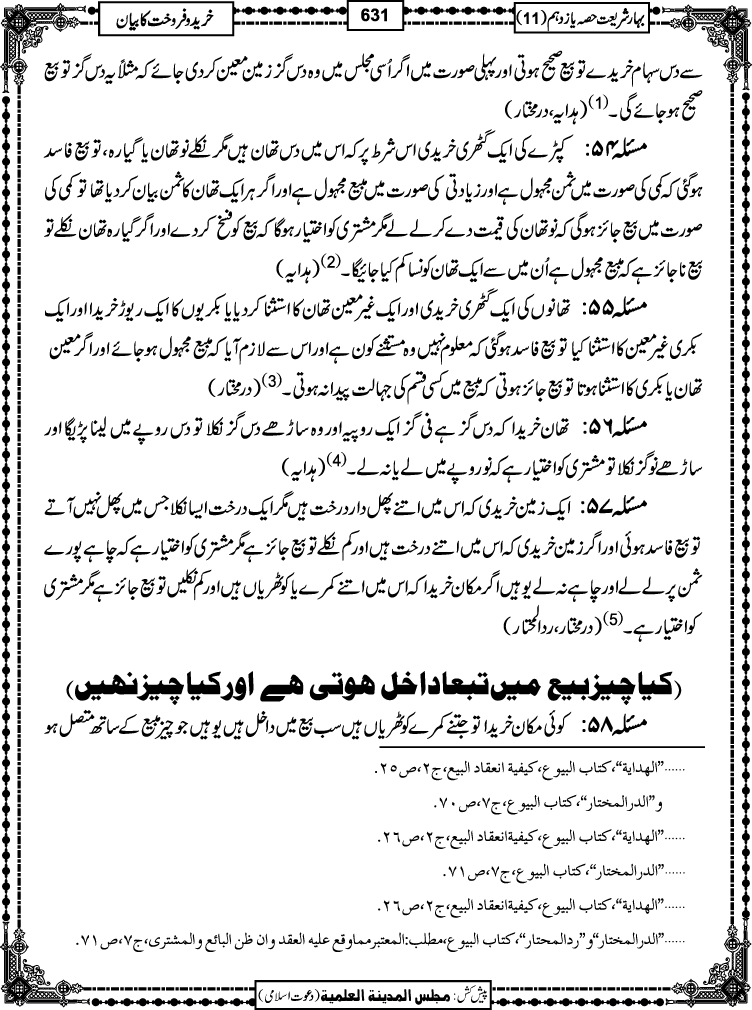 بہار شریعت حصہ یازدہم (11)
631
خرید و فروخت کا بیان
سے دس سہام خریدے تو بیع صحیح ہوتی اور پہلی صورت میں اگر اُسی مجلس میں وہ دس گز زمین معین کردی جائے کہ مثلاً یہ دس گز تو بیع
صحیح ہوجائے گی۔(1) (ہدایہ، درمختار)
مسئلہ ۵۴: کپڑے کی ایک گٹھری خریدی اس شرط پر کہ اس میں دس تھان ہیں مگر نکلے نو تھان یا گیارہ، تو بیع فاسد
ہوگئی کہ کمی کی صورت میں ثمن مجہول ہے اور زیادتی کی صورت میں مبیع مجہول ہے اور اگر ہر ایک تھان کا ثمن بیان کر دیا تھا تو کمی کی
صورت میں بیع جائز ہوگی کہ نو تھان کی قیمت دے کر لے لے مگر مشتری کو اختیار ہوگا کہ بیع کو فسخ کر دے اور اگر گیارہ تھان نکلے تو
بیع نا جائز ہے کہ مبیع مجہول ہے اُن میں سے ایک تھان کونسا کم کیا جائیگا۔(2) (ہدایہ)
مسئلہ ۵۵: تھانوں کی ایک گٹھری خریدی اور ایک غیر معین تھان کا استثنا کر دیا یا بکریوں کا ایک ریوڑ خریدا اور ایک
بکری غیر معین کا استثنا کیا تو بیع فاسد ہوگئی کہ معلوم نہیں وہ مستثنےٰ کون ہے اور اس سے لازم آیا کہ مبیع مجہول ہو جائے اور اگر معین
تھان یا بکری کا استثنا ہوتا تو بیع جائز ہوتی کہ مبیع میں کسی قسم کی جہالت پیدا نہ ہوتی۔(3) (درمختار)
مسئلہ ۵۶: تھان خریدا کہ دس گز ہے فی گز ایک روپیہ اور وہ ساڑھے دس گز نکلا تو دس روپے میں لینا پڑیگا اور
ساڑھے نو گز نکلا تو مشتری کو اختیار ہے کہ نو روپے میں لے یا نہ لے۔(4) (ہدایہ)
مسئلہ ۵۷: ایک زمین خریدی کہ اس میں اتنے پھل دار درخت ہیں مگر ایک درخت ایسا نکلا جس میں پھل نہیں آتے
تو بیع فاسد ہوئی اور اگر زمین خریدی کہ اس میں اتنے درخت ہیں اور کم نکلے تو بیع جائز ہے مگر مشتری کو اختیار ہے کہ چاہے پورے
ثمن پر لے لے اور چاہے نہ لے یوہیں اگر مکان خریدا کہ اس میں اتنے کمرے یا کوٹھریاں ہیں اور کم نکلیں تو بیع جائز ہے مگر مشتری
کو اختیار ہے۔(5) (درمختار، ردالمحتار)
(کیا چیز بیع میں تبعاً داخل ہوتی ہے اور کیا چیز نہیں)
مسئلہ ۵۸: کوئی مکان خریدا تو جتنے کمرے کوٹھریاں ہیں سب بیع میں داخل ہیں یوہیں جو چیز مبیع کے ساتھ متصل ہو
......”الهداية“، كتاب البيوع، كيفية انعقاد البيع، ج۲، ص۲۵.
و”الدرالمختار“، كتاب البيوع، ج۷، ص۷۰.
......”الهداية“، كتاب البيوع، كيفية انعقاد البيع، ج۲، ص۲۶.
......”الدرالمختار“، كتاب البيوع، ج۷، ص۷۱.
......”الهداية“، كتاب البيوع، كيفية انعقاد البيع، ج۲، ص۲۶.
......”الدرالمختار“و”ردالمحتار“، كتاب البيوع، مطلب: المعتبر ما وقع عليه العقد وان ظن البائع والمشترى، ج۷، ص۷۱.
پیش کش: مجلس المدينة العلمية (دعوت اسلامی)